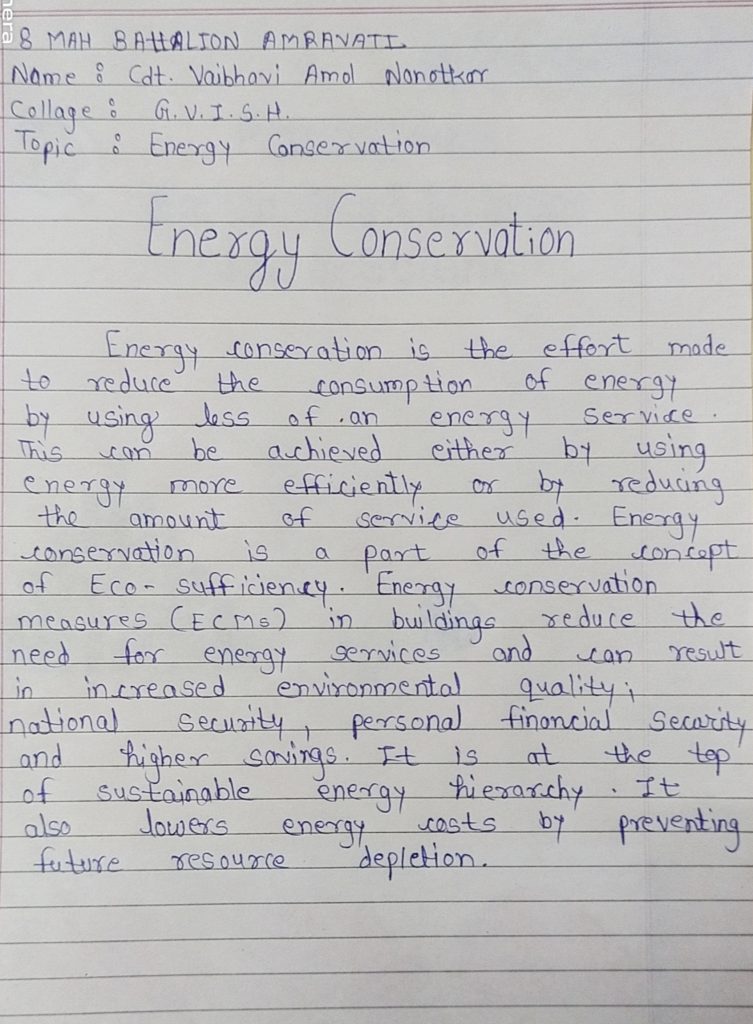 era
8 MAH BATTALION AMRAVATI
Name : Cdt. Vaibhavi Amol Nanotkar
Collage : G.V.I.S.H.
Topic : Energy Conservation
Energy Conservation
Energy conseration is the effort made
to reduce the consumption of energy
by using less of an energy service.
This can be achieved either by using
energy more efficiently or by reducing
the amount of service used. Energy
conservation is a part of the concept
of Eco-sufficiency. Energy conservation
measures (ECMs) in buildings reduce the
need for energy services and can result
in increased environmental quality;
national security, personal financial security
and higher savings. It is at the top
of sustainable energy hierarchy. It
also lowers energy costs by preventing
future resource depletion.